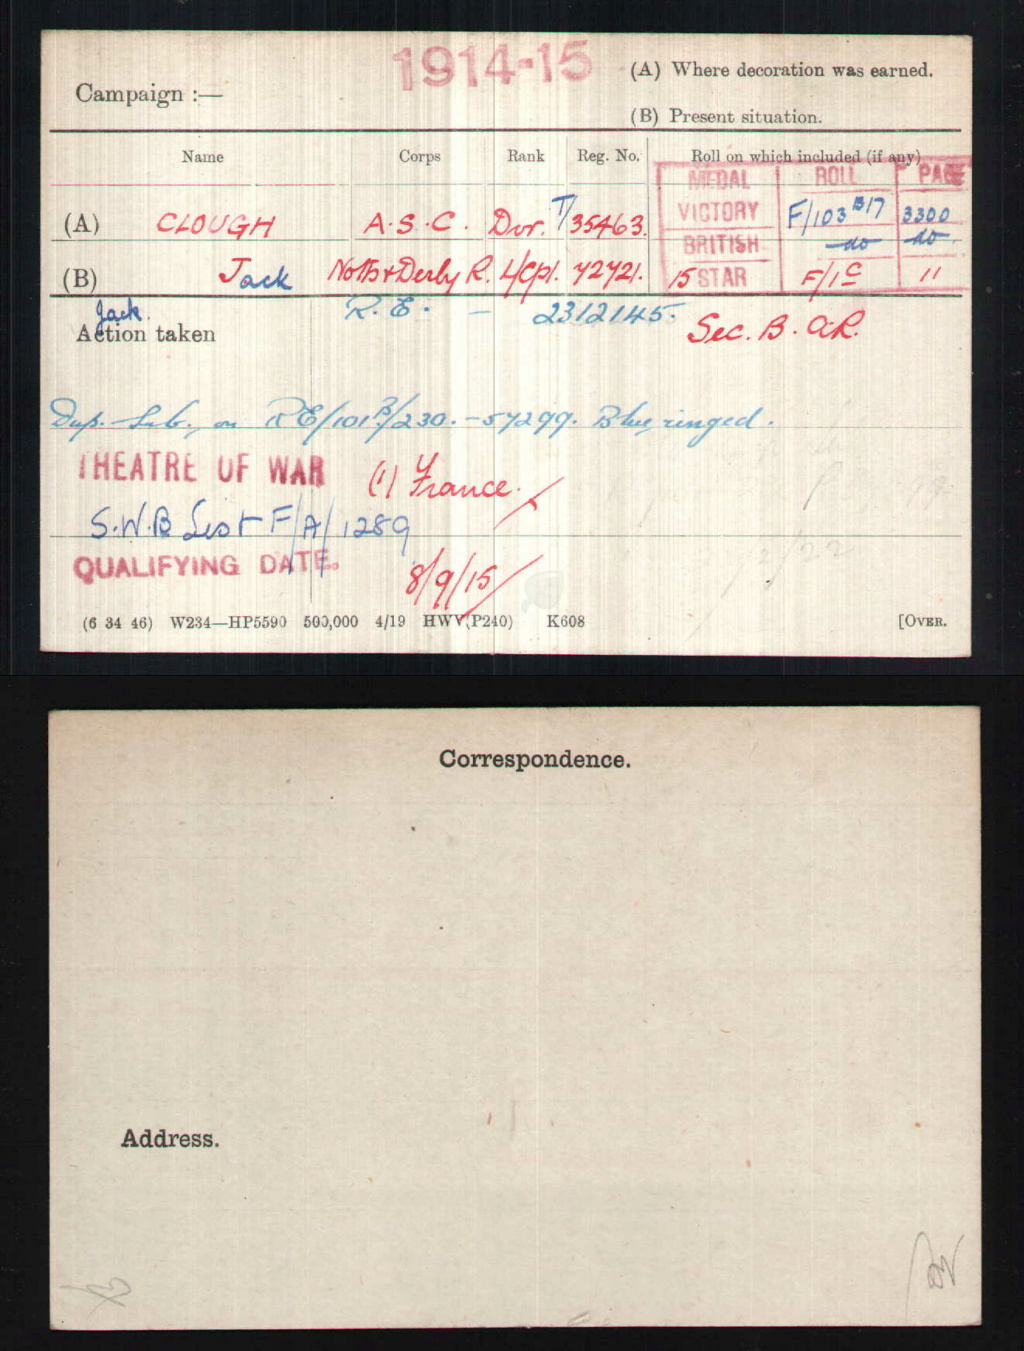 1914-15
(A) Where decoration was earned.
Campaign :—
(B) Present situation.
Name Corps Rank Reg. No. Roll on which included (if any)
MEDAL ROLL PAGE
(A) CLOUGH A.S.C. Dvr. T/35463. VICTORY F/103 B17 3300
BRITISH do do
(B) Jack Notts & Derby R. L/Cpl. 72721. 15 STAR F/1C "
Jack. R.E. — 2312145.
Action taken Sec. B. O.R.
Dup. on RE/101B/230.-57299. Blue ringed.
THEATRE OF WAR (1) France.
S.W.B List F/A/1289
QUALIFYING DATE. 8/9/15
(6 34 46) W234—HP5590 500,000 4/19 HWV(P240) K608 [OVER.
Correspondence.
Address.